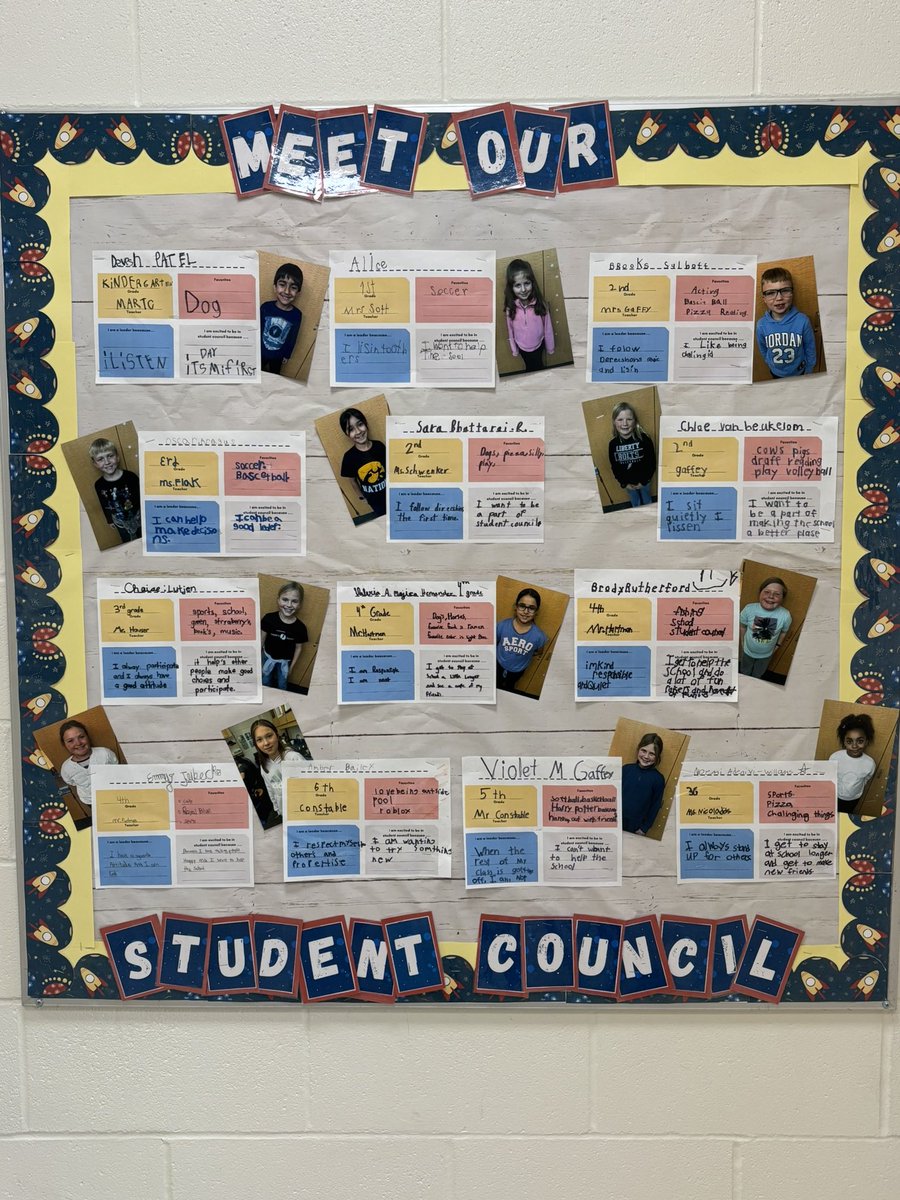 MEET OUR
Devesh PATEL
KINDERGARTEN
Grade
MARTO
Teacher
Favorites
Dog
I am a leader because...
iLiSTEN
I am excited to be in
student council because...
DAY
ITSMIFIRST
Alice
1st
Grade
Teacher
Favorites
Soccer
I am a leader because...
I am excited to be in
student council because...
I want to help
the
Brooks Sylbott
2nd
Grade
mrs Gaffy
Teacher
Favorites
Acting
Pizza Reading
I am a leader because...
I folow
and lisin
I am excited to be in
student council because...
I Like being
JORDAN
23
Ms. Flak
Teacher
Favorites
soccer
Bascetball
I am a leader because...
I can help
make deciso
ns.
I am excited to be in
student council because...
I can be a
good
Sara Bhattarai-R.
2nd
Grade
Ms. Schwenker
Teacher
Favorites
Dogs, pizza, silly
plays
I am a leader because...
I follow directions
the first time.
I am excited to be in
student council because...
I want to
be a part of
student council
NATION
Chloe van beukelom
2nd
Grade
gaffey
Teacher
Favorites
cows pigs
draft redding
play volleyball
I am a leader because...
I sit
quietly I
lissen
I am excited to be in
student council because...
I want to
be a part of
making the school
a better plase
LIBERTY
BOLTS
3rd grade
Grade
Mr. Hauser
Teacher
Favorites
sports, school,
green, strawberry's
book's, music.
I am a leader because...
I alway participate
and I always have
a good attitude
I am excited to be in
student council because...
it help's other
people make good
choices and
participate.
4th grade
4th Grade
Grade
Mr. Hartman
Teacher
Favorites
Dogs, Horses,
I am a leader because...
I am Responsible
I am neat
I am excited to be in
student council because...
I get to stay at
School a little longer
and see a some of my
friends.
AERO
SPORT
Brody Rutherford
4th
Grade
Mr. Hartman
Teacher
Favorites
School
student council
I am a leader because...
im kind
responsible
and Quiet
I am excited to be in
student council because...
I get to help the
school and do
a lot of fun
4th
Grade
Teacher
Favorites
Royal Blue
I am a leader because...
I am excited to be in
student council because...
Bailey
6th
Grade
Constable
Teacher
Favorites
love being outside
pool
roblox
I am a leader because...
I respect myself
others and
Propertise
I am excited to be in
student council because...
I am wanting
to try somthing
new
Violet M Gaffey
5th
Grade
Mr Constable
Teacher
Favorites
Softball basketball
Harry potter
Hanging out with friends
I am a leader because...
When the
rey of my
class is gooffing
off, I am not
I am excited to be in
student council because...
I can't wait
to help the
school
Grade
Ms. Nicoladas
Teacher
Favorites
Sports
Pizza
Chalinging things
I am a leader because...
I always stand
up for others
I am excited to be in
student council because...
I get to stay
at school longer
and get to make
new friends
STUDENT COUNCIL